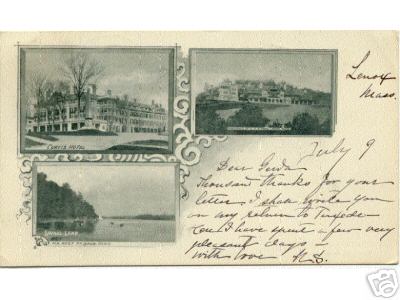 CURTIS HOTEL
LAUREL LAKE
Lenox
Mass.
July 9
Dear Gerda
Thousand thanks for your
letter. I shall write you
on my return to Tuxedo—
Can I have spent a few very
pleasant days —
with love
eBay